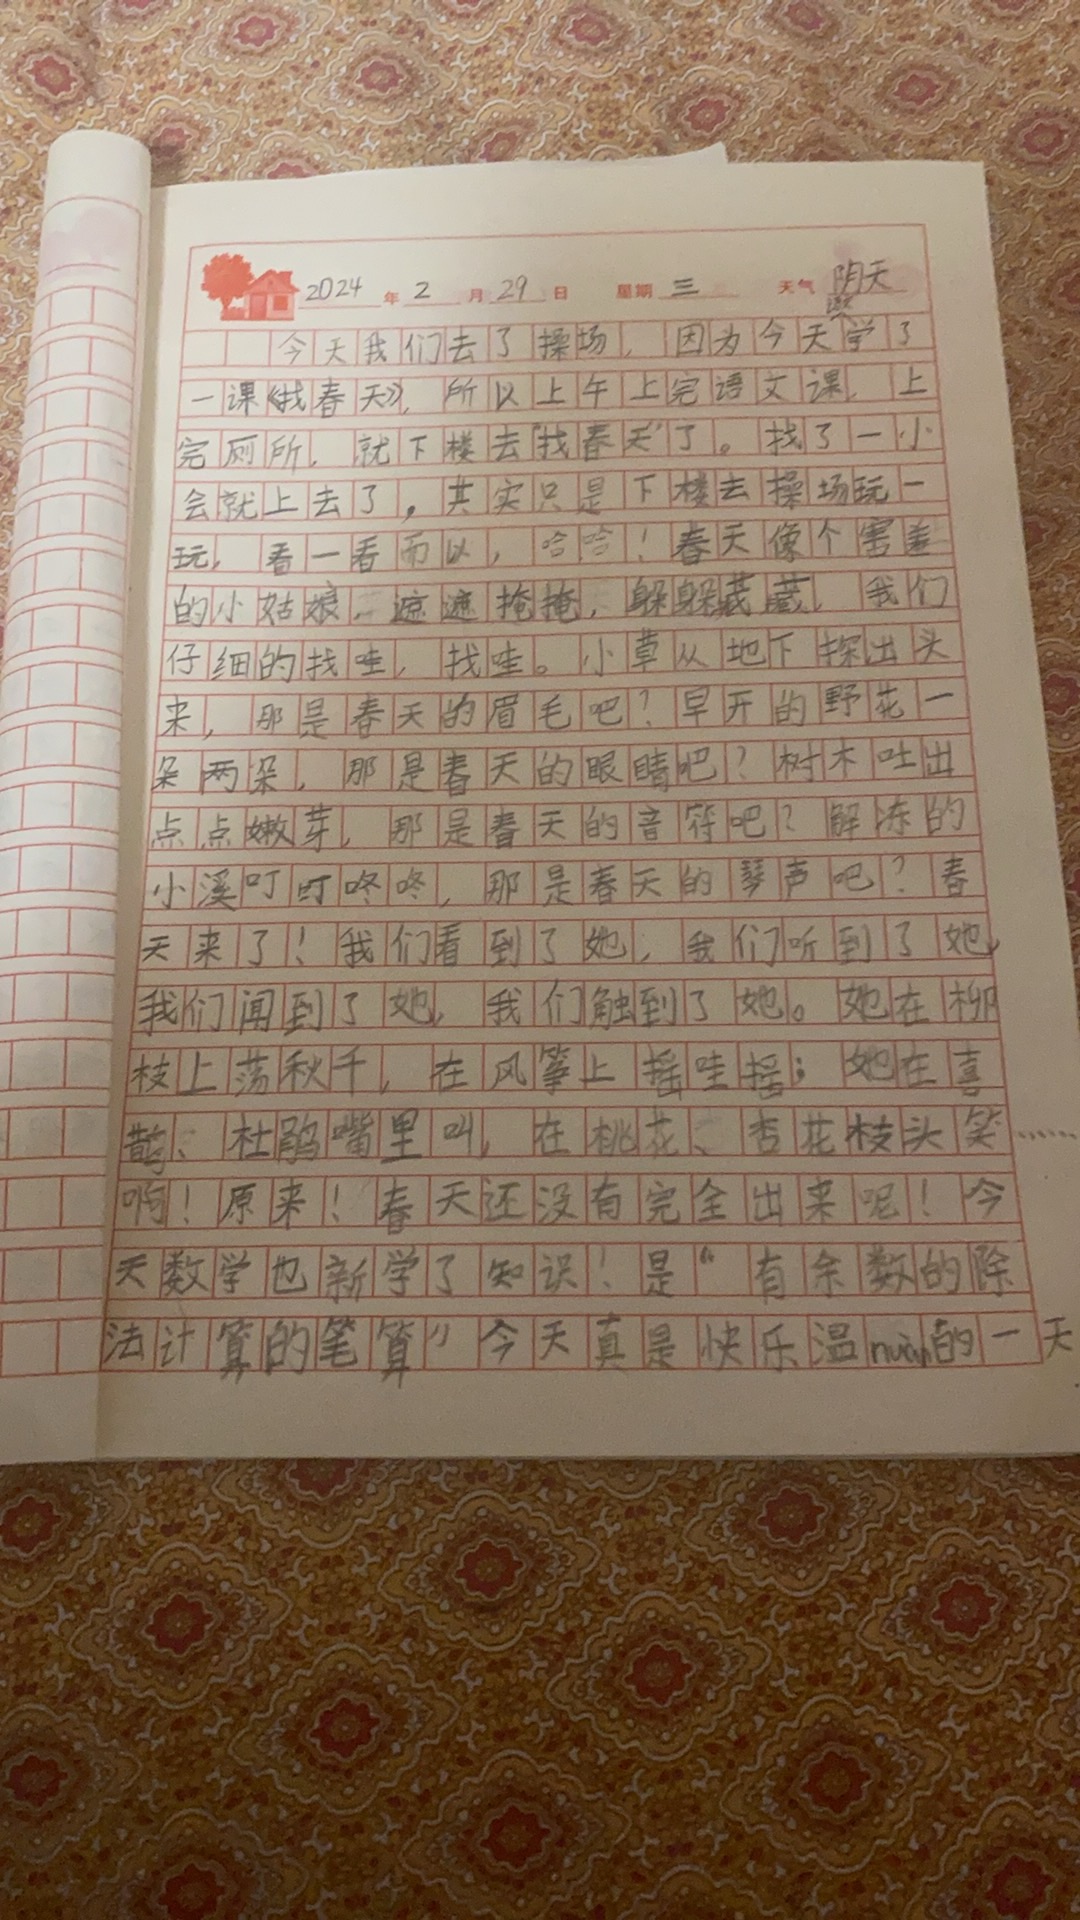 2024 年 2 月 29 日 星期 三 天气 阴天
今天我们去了操场，因为今天学了
一课《找春天》，所以上午上完语文课，上
完厕所，就下楼去“找春天”了。找了一小
会就上去了，其实只是下楼去操场玩一
玩，看一看而以，哈哈！春天像个害羞
的小姑娘，遮遮掩掩，躲躲藏藏，我们
仔细的找哇，找哇。小草从地下探出头
来，那是春天的眉毛吧？早开的野花一
朵两朵，那是春天的眼睛吧？树木吐出
点点嫩芽，那是春天的音符吧？解冻的
小溪叮叮咚咚，那是春天的琴声吧？春
天来了！我们看到了她，我们听到了她，
我们闻到了她，我们触到了她。她在柳
枝上荡秋千，在风筝上摇哇摇；她在喜
鹊、杜鹃嘴里叫，在桃花、杏花枝头笑
啊！原来！春天还没有完全出来呢！今
天数学也新学了知识！是“有余数的除
法计算的笔算”今天真是快乐温nuǎn的一天